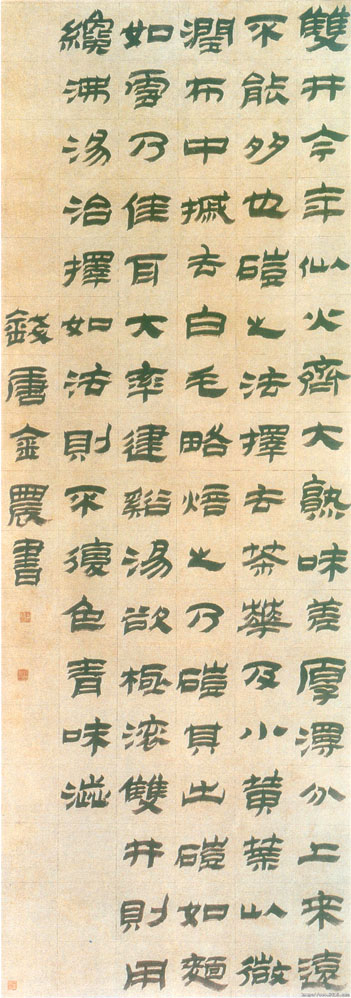 雙井今年仙火齊大熟味差厚澤分上來遠
不能多也磑之法擇去茶華及小黃葉以微
潤布中摵去白毛略焙之乃磑其出磑如麵
如雪乃佳耳大率建谿湯欲極滾雙井則用
纔沸湯治擇如法則不復色青味澁
錢唐金農書